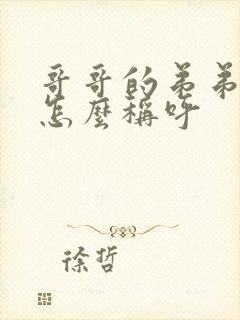 哥哥的弟弟
怎麼稱呼
徐哲